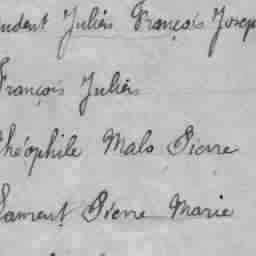 Julien François Joseph
François Julien
Théophile Malo Pierre
Pierre Marie